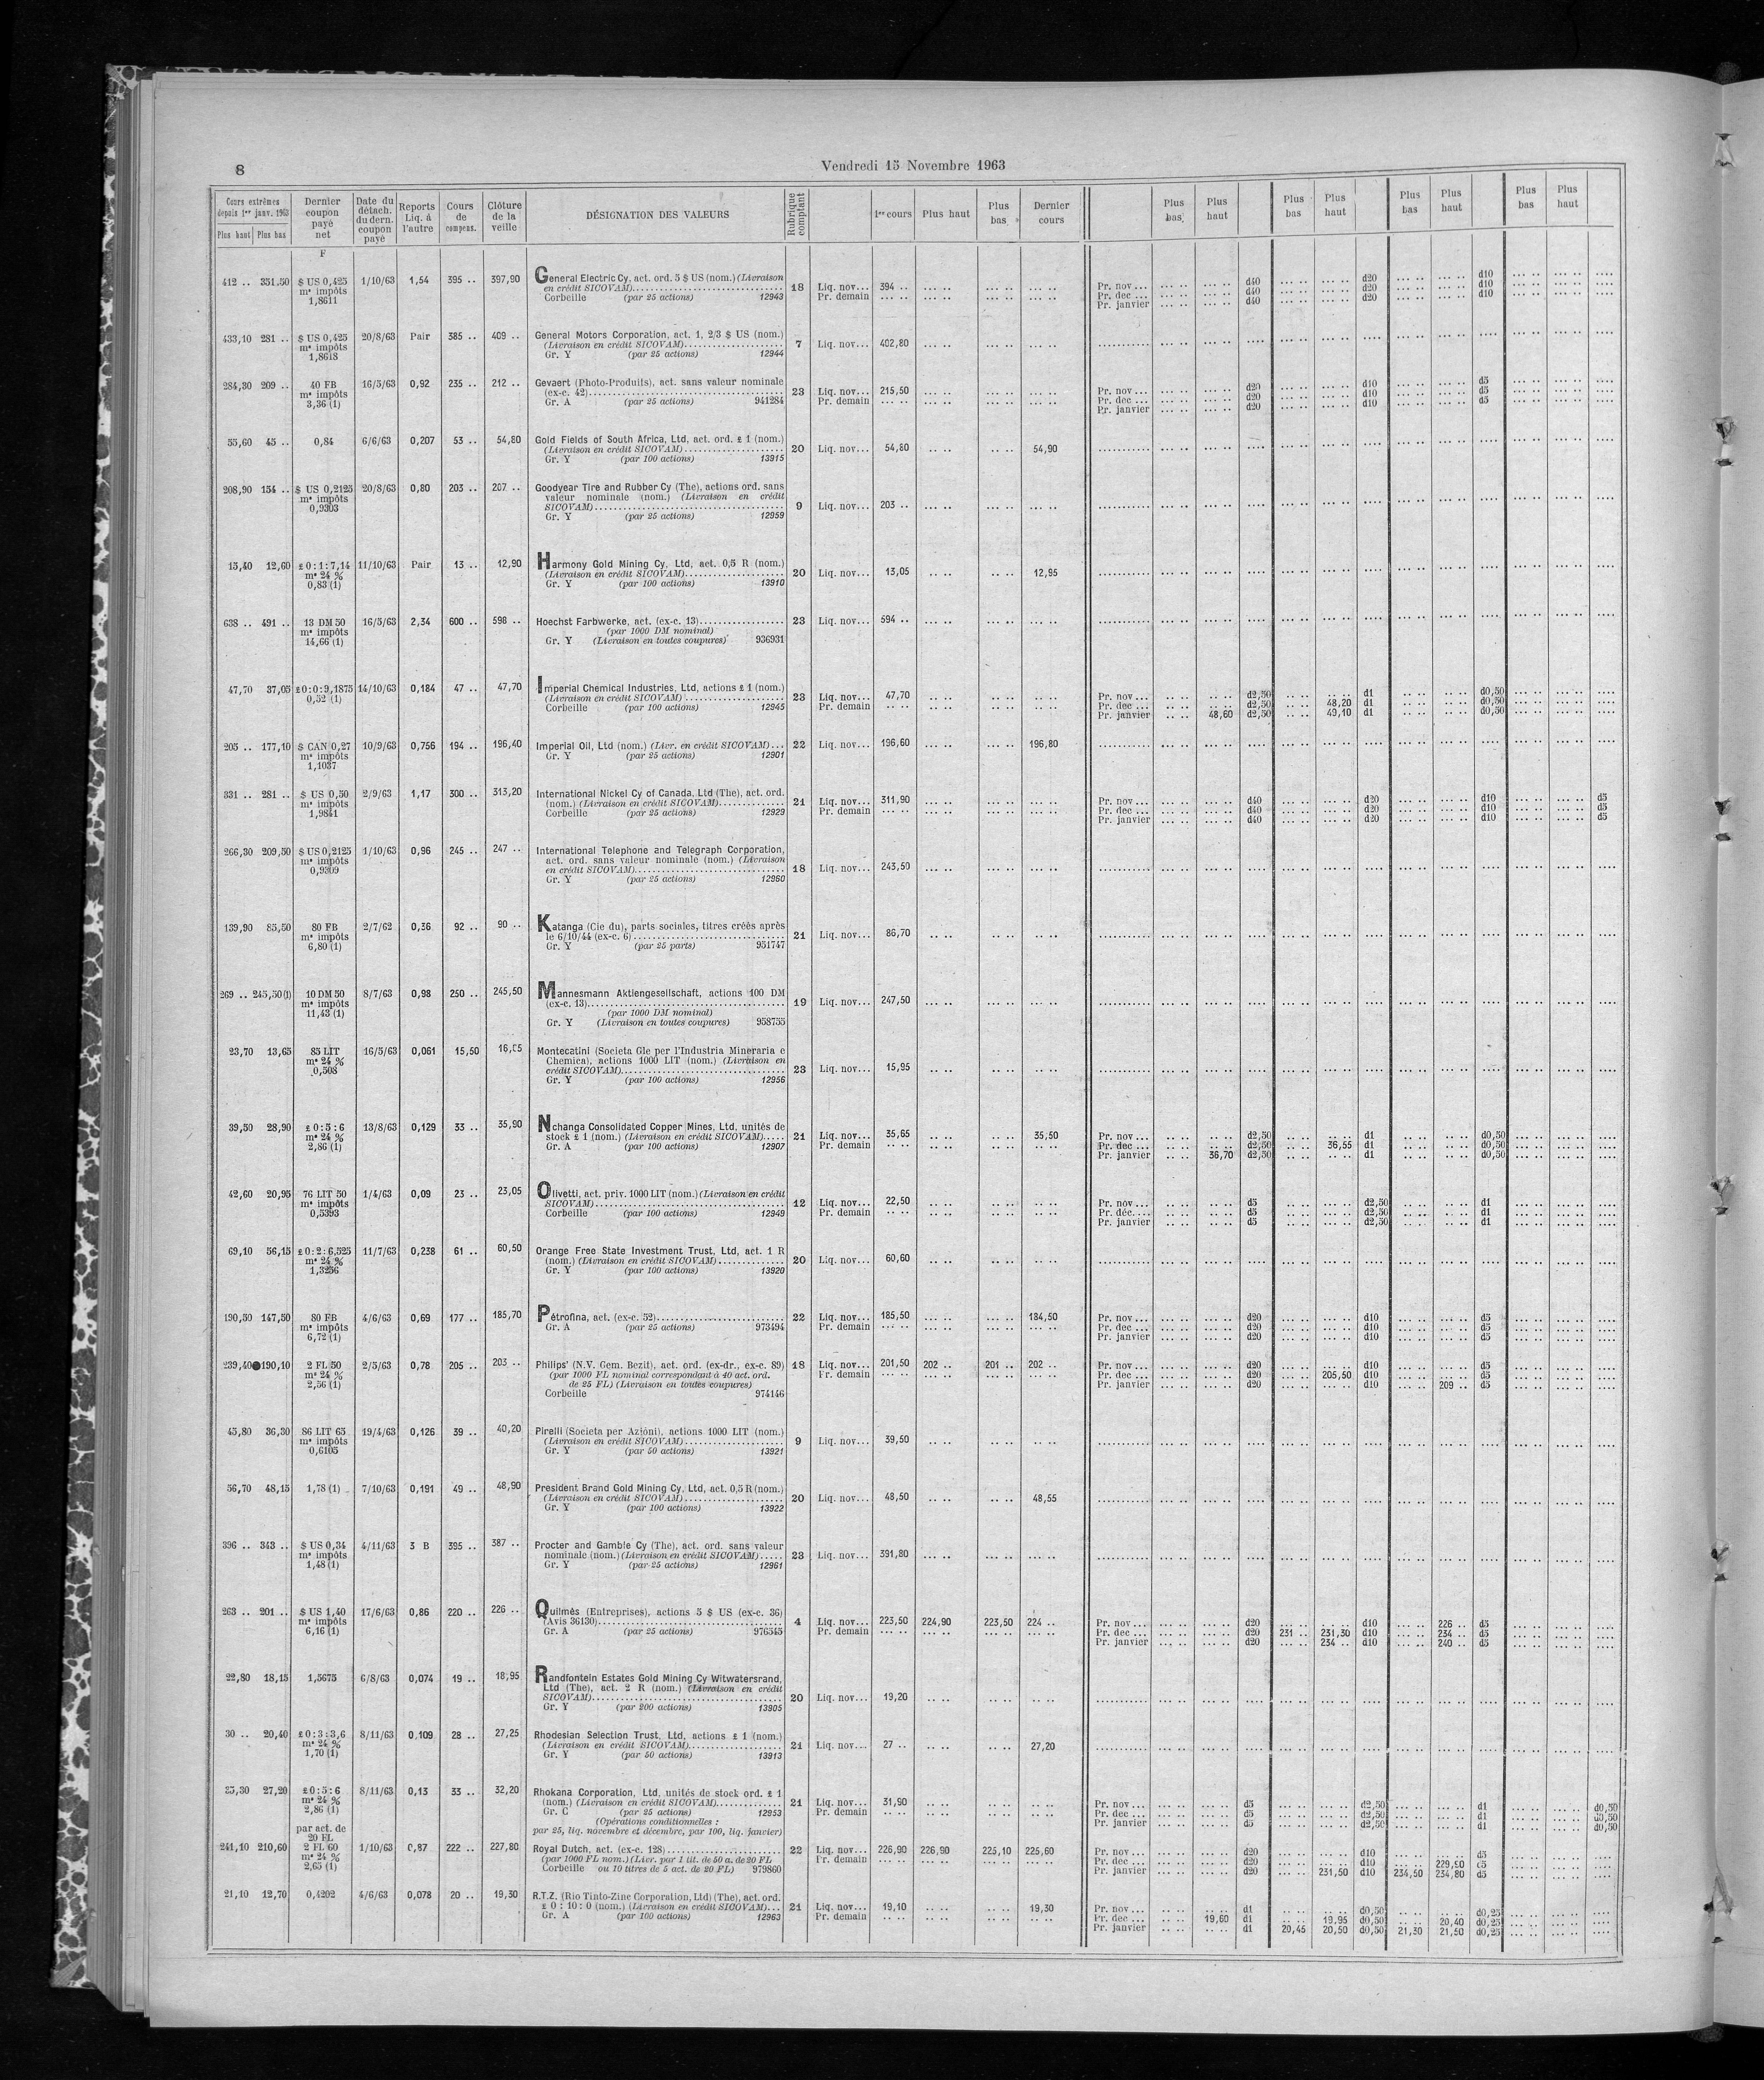 8
Vendredi 15 Novembre 1963
Cours extrêmes depuis 1er janv. 1963 Plus haut Plus bas | Dernier coupon payé net | Date du détach. du dern. coupon payé | Reports Liq. à l'autre | Cours de compens. | Clôture de la veille | DÉSIGNATION DES VALEURS | Rubrique comptant | 1er cours | Plus haut | Plus bas | Dernier cours | Plus bas | Plus haut | Plus bas | Plus haut | Plus bas | Plus haut | Plus bas | Plus haut
F
412 .. 351,50 $ US 0,425 1/10/63 1,54 395 .. 397,90 General Electric Cy, act. ord. 5 $ US (nom.) (Livraison
m* impôts en crédit SICOVAM) 18 Liq. nov... 394 .. Pr. nov ... d40 d20 d10
1,8611 Corbeille (par 25 actions) 12943 Pr. demain Pr. dec ... d40 d20 d10
Pr. janvier d40 d20 d10
433,10 281 .. $ US 0,425 20/8/63 Pair 385 .. 409 .. General Motors Corporation, act. 1, 2/3 $ US (nom.)
m* impôts (Livraison en crédit SICOVAM) 7 Liq. nov... 402,80
1,8618 Gr. Y (par 25 actions) 12944
284,30 209 .. 40 FB 16/5/63 0,92 235 .. 212 .. Gevaert (Photo-Produits), act. sans valeur nominale
m* impôts (ex-c. 42) 23 Liq. nov... 215,50 Pr. nov ... d20 d10 d5
3,36 (1) Gr. A (par 25 actions) 941284 Pr. demain Pr. dec ... d20 d10 d5
Pr. janvier d20 d10 d5
55,60 45 .. 0,84 6/6/63 0,207 53 .. 54,80 Gold Fields of South Africa, Ltd, act. ord. £ 1 (nom.)
(Livraison en crédit SICOVAM) 20 Liq. nov... 54,80 54,90
Gr. Y (par 100 actions) 13915
208,90 154 .. $ US 0,2125 20/8/63 0,80 203 .. 207 .. Goodyear Tire and Rubber Cy (The), actions ord. sans
m* impôts valeur nominale (nom.) (Livraison en crédit
0,9303 SICOVAM) 9 Liq. nov... 203 ..
Gr. Y (par 25 actions) 12959
15,40 12,60 £ 0:1:7,14 11/10/63 Pair 13 .. 12,90 Harmony Gold Mining Cy, Ltd, act. 0,5 R (nom.)
m* 24 % (Livraison en crédit SICOVAM) 20 Liq. nov... 13,05 12,95
0,83 (1) Gr. Y (par 100 actions) 13910
638 .. 491 .. 13 DM 50 16/5/63 2,34 600 .. 598 .. Hoechst Farbwerke, act. (ex-c. 13) 23 Liq. nov... 594 ..
m* impôts (par 1000 DM nominal)
14,66 (1) Gr. Y (Livraison en toutes coupures) 936931
47,70 37,05 £0:0:9,1875 14/10/63 0,184 47 .. 47,70 Imperial Chemical Industries, Ltd, actions £ 1 (nom.)
0,52 (1) (Livraison en crédit SICOVAM) 23 Liq. nov... 47,70 Pr. nov ... d2,50 d1 d0,50
Corbeille (par 100 actions) 12945 Pr. demain Pr. dec ... d2,50 48,20 d1 d0,50
Pr. janvier 48,60 d2,50 49,10 d1 d0,50
205 .. 177,10 $ CAN 0,27 10/9/63 0,756 194 .. 196,40 Imperial Oil, Ltd (nom.) (Livr. en crédit SICOVAM)... 22 Liq. nov... 196,60 196,80
m* impôts Gr. Y (par 25 actions) 12901
1,1037
331 .. 281 .. $ US 0,50 2/9/63 1,17 300 .. 313,20 International Nickel Cy of Canada, Ltd (The), act. ord.
m* impôts (nom.) (Livraison en crédit SICOVAM) 21 Liq. nov... 311,90 Pr. nov ... d40 d20 d10 d5
1,9841 Corbeille (par 25 actions) 12929 Pr. demain Pr. dec ... d40 d20 d10 d5
Pr. janvier d40 d20 d10 d5
266,30 209,50 $ US 0,2125 1/10/63 0,96 245 .. 247 .. International Telephone and Telegraph Corporation,
m* impôts act. ord. sans valeur nominale (nom.) (Livraison
0,9309 en crédit SICOVAM) 18 Liq. nov... 243,50
Gr. Y (par 25 actions) 12960
139,90 85,50 80 FB 2/7/62 0,36 92 .. 90 .. Katanga (Cie du), parts sociales, titres créés après
m* impôts le 6/10/44 (ex-c. 6) 21 Liq. nov... 86,70
6,80 (1) Gr. Y (par 25 parts) 951747
269 .. 245,50(1) 10 DM 50 8/7/63 0,98 250 .. 245,50 Mannesmann Aktiengesellschaft, actions 100 DM
m* impôts (ex-c. 13) 19 Liq. nov... 247,50
11,43 (1) (par 1000 DM nominal)
Gr. Y (Livraison en toutes coupures) 958755
23,70 13,65 85 LIT 16/5/63 0,061 15,50 16,05 Montecatini (Societa Gle per l'Industria Mineraria e
m* 24 % Chemica), actions 1000 LIT (nom.) (Livraison en
0,508 crédit SICOVAM) 23 Liq. nov... 15,95
Gr. Y (par 100 actions) 12956
39,50 28,90 £ 0:5:6 13/8/63 0,129 33 .. 35,90 Nchanga Consolidated Copper Mines, Ltd, unités de
m* 24 % stock £ 1 (nom.) (Livraison en crédit SICOVAM) 21 Liq. nov... 35,65 35,50 Pr. nov ... d2,50 d1 d0,50
2,86 (1) Gr. A (par 100 actions) 12907 Pr. demain Pr. dec ... d2,50 36,55 d1 d0,50
Pr. janvier 36,70 d2,50 d1 d0,50
42,60 20,95 76 LIT 50 1/4/63 0,09 23 .. 23,05 Olivetti, act. priv. 1000 LIT (nom.) (Livraison en crédit
m* impôts SICOVAM) 12 Liq. nov... 22,50 Pr. nov ... d5 d2,50 d1
0,5393 Corbeille (par 100 actions) 12949 Pr. demain Pr. déc. ... d5 d2,50 d1
Pr. janvier d5 d2,50 d1
69,10 56,15 £0:2:6,525 11/7/63 0,238 61 .. 60,50 Orange Free State Investment Trust, Ltd, act. 1 R
m* 24 % (nom.) (Livraison en crédit SICOVAM) 20 Liq. nov... 60,60
1,3256 Gr. Y (par 100 actions) 13920
190,50 147,50 80 FB 4/6/63 0,69 177 .. 185,70 Pétrofina, act. (ex-c. 52) 22 Liq. nov... 185,50 184,50 Pr. nov ... d20 d10 d5
m* impôts Gr. A (par 25 actions) 973494 Pr. demain Pr. dec ... d20 d10 d5
6,72 (1) Pr. janvier d20 d10 d5
239,40●190,10 2 FL 50 2/5/63 0,78 205 .. 203 .. Philips' (N.V. Gem. Bezit), act. ord. (ex-dr., ex-c. 89) 18 Liq. nov... 201,50 202 .. 201 .. 202 .. Pr. nov ... d20 d10 d5
m* 24 % (par 1000 FL nominal correspondant à 40 act. ord. Pr. demain Pr. dec ... d20 205,50 d10 d5
2,56 (1) de 25 FL) (Livraison en toutes coupures) Pr. janvier d20 d10 209 .. d5
Corbeille 974146
45,80 36,30 86 LIT 65 19/4/63 0,126 39 .. 40,20 Pirelli (Societa per Azioni), actions 1000 LIT (nom.)
m* impôts (Livraison en crédit SICOVAM) 9 Liq. nov... 39,50
0,6105 Gr. Y (par 50 actions) 13921
56,70 48,15 1,78 (1) 7/10/63 0,191 49 .. 48,90 President Brand Gold Mining Cy, Ltd, act. 0,5 R (nom.)
(Livraison en crédit SICOVAM) 20 Liq. nov... 48,50 48,55
Gr. Y (par 100 actions) 13922
396 .. 343 .. $ US 0,34 4/11/63 3 B 395 .. 387 .. Procter and Gamble Cy (The), act. ord. sans valeur
m* impôts nominale (nom.) (Livraison en crédit SICOVAM) 23 Liq. nov... 391,80
1,48 (1) Gr. Y (par 25 actions) 12961
263 .. 201 .. $ US 1,40 17/6/63 0,86 220 .. 226 .. Quilmès (Entreprises), actions 5 $ US (ex-c. 36)
m* impôts (Avis 36130) 4 Liq. nov... 223,50 224,90 223,50 224 .. Pr. nov ... d20 d10 226 .. d5
6,16 (1) Gr. A (par 25 actions) 976545 Pr. demain Pr. dec ... d20 231 .. 231,30 d10 234 .. d5
Pr. janvier d20 234 .. d10 240 .. d5
22,80 18,15 1,5675 6/8/63 0,074 19 .. 18,95 Randfontein Estates Gold Mining Cy Witwatersrand,
Ltd (The), act. 2 R (nom.) (Livraison en crédit
SICOVAM) 20 Liq. nov... 19,20
Gr. Y (par 200 actions) 13905
30 .. 20,40 £0:3:3,6 8/11/63 0,109 28 .. 27,25 Rhodesian Selection Trust, Ltd, actions £ 1 (nom.)
m* 24 % (Livraison en crédit SICOVAM) 21 Liq. nov... 27 .. 27,20
1,70 (1) Gr. Y (par 50 actions) 13913
35,30 27,20 £0:5:6 8/11/63 0,13 33 .. 32,20 Rhokana Corporation, Ltd, unités de stock ord. £ 1
m* 24 % (nom.) (Livraison en crédit SICOVAM) 21 Liq. nov... 31,90 Pr. nov ... d5 d2,50 d1 d0,50
2,86 (1) Gr. C (par 25 actions) 12953 Pr. demain Pr. dec ... d5 d2,50 d1 d0,50
(Opérations conditionnelles : Pr. janvier d5 d2,50 d1 d0,50
par act. de par 25, liq. novembre et décembre, par 100, liq. janvier)
20 FL
241,10 210,60 2 FL 60 1/10/63 0,87 222 .. 227,80 Royal Dutch, act. (ex-c. 128) 22 Liq. nov... 226,90 226,90 225,10 225,60 Pr. nov ... d20 d10 d5
m* 24 % (par 1000 FL nom.) (Livr. par 1 tit. de 50 a. de 20 FL Pr. demain Pr. dec ... d20 d10 229,90 d5
2,65 (1) Corbeille ou 10 titres de 5 act. de 20 FL) 979860 Pr. janvier d20 231,50 d10 234,50 234,80 d5
21,10 12,70 0,4202 4/6/63 0,078 20 .. 19,30 R.T.Z. (Rio Tinto-Zinc Corporation, Ltd) (The), act. ord.
£ 0 : 10 : 0 (nom.) (Livraison en crédit SICOVAM)... 21 Liq. nov... 19,10 19,30 Pr. nov ... d1 d0,50 d0,25
Gr. A (par 100 actions) 12963 Pr. demain Pr. dec ... 19,60 d1 19,95 d0,50 20,40 d0,25
Pr. janvier d1 20,45 20,50 d0,50 21,30 21,50 d0,25